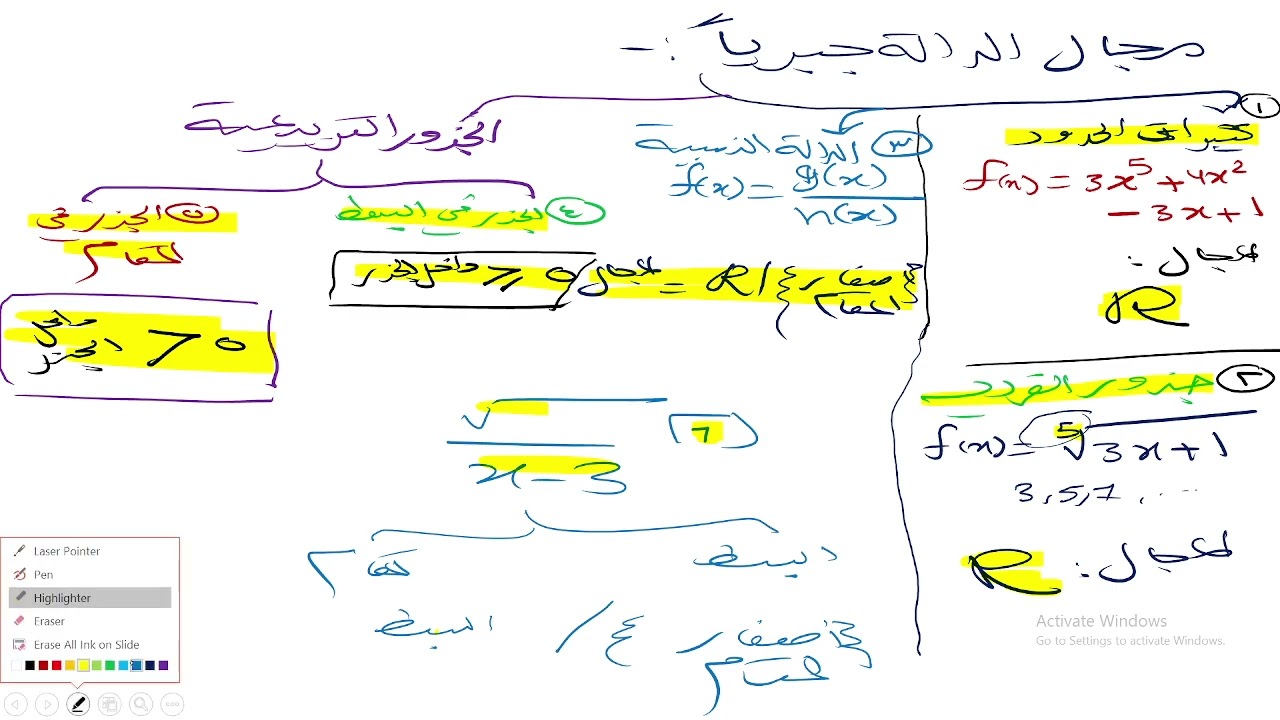 مجال الدالة جبرياً :-
١ كثيرات الحدود
f(x) = 3x⁵ + 4x²
- 3x + 1
المجال :
R
٢ جذور الفردية
f(x) = ⁵√3x + 1
3, 5, 7, ...
المجال :
R
٣ الدالة النسبية
f(x) = g(x) / h(x)
المجال = R / { أصفار المقام }
الجذور التربيعية
٤ الجذر في البسط
داخل الجذر ≥ 0
٥ الجذر في
المقام
داخل الجذر > 0
٦
√
x - 3
البسط
المقام
البسط / { أصفار المقام }
Laser Pointer
Pen
Highlighter
Eraser
Erase All Ink on Slide
Activate Windows
Go to Settings to activate Windows.